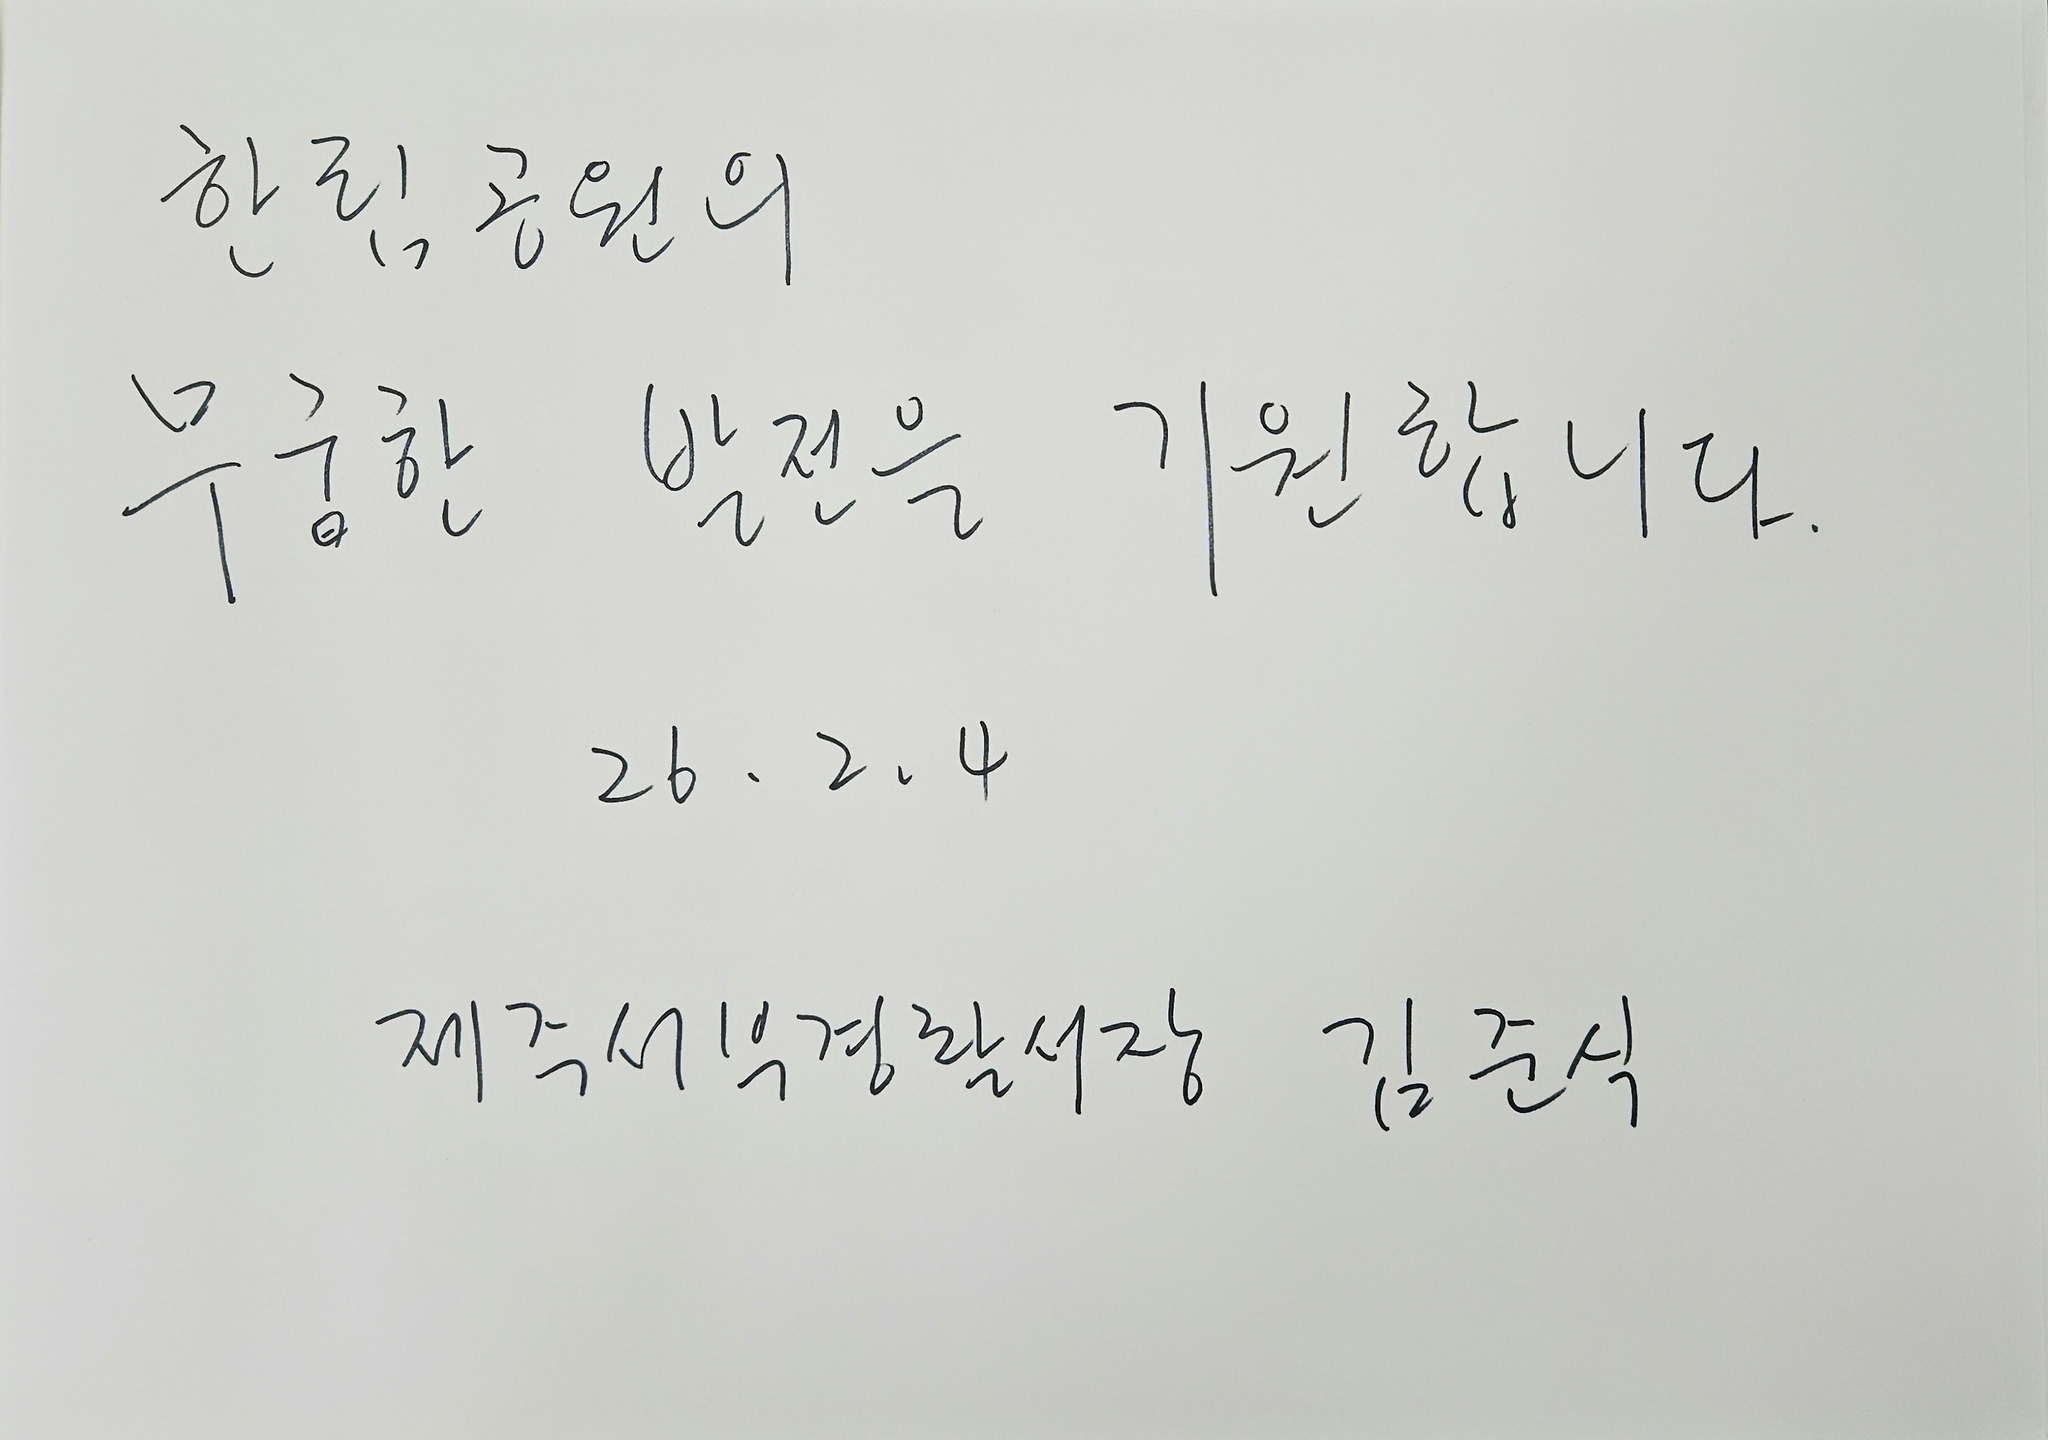 한림공원의
무궁한 발전을 기원합니다.
26. 2. 4
제주서부경찰서장 김준식